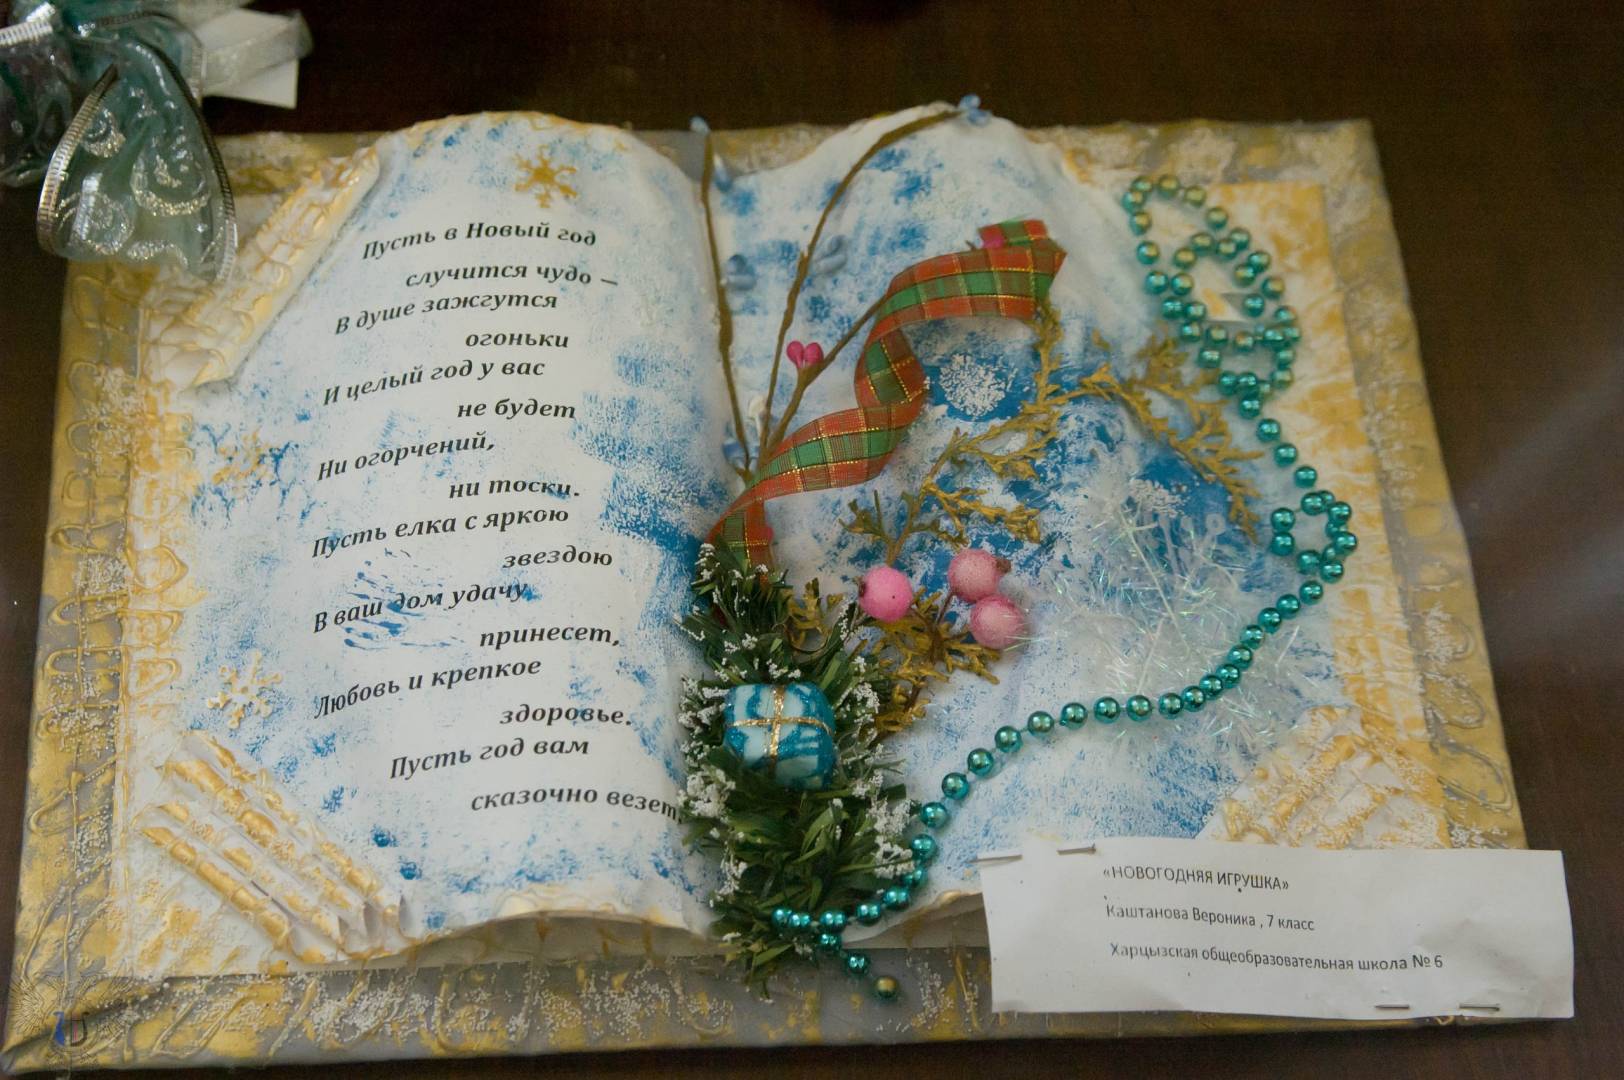 Пусть в Новый год
случится чудо –
В душе зажгутся
огоньки
И целый год у вас
не будет
Ни огорчений,
ни тоски.
Пусть елка с яркою
звездою
В ваш дом удачу
принесет,
Любовь и крепкое
здоровье.
Пусть год вам
сказочно везет
«НОВОГОДНЯЯ ИГРУШКА»
Каштанова Вероника , 7 класс
Харцызская общеобразовательная школа № 6